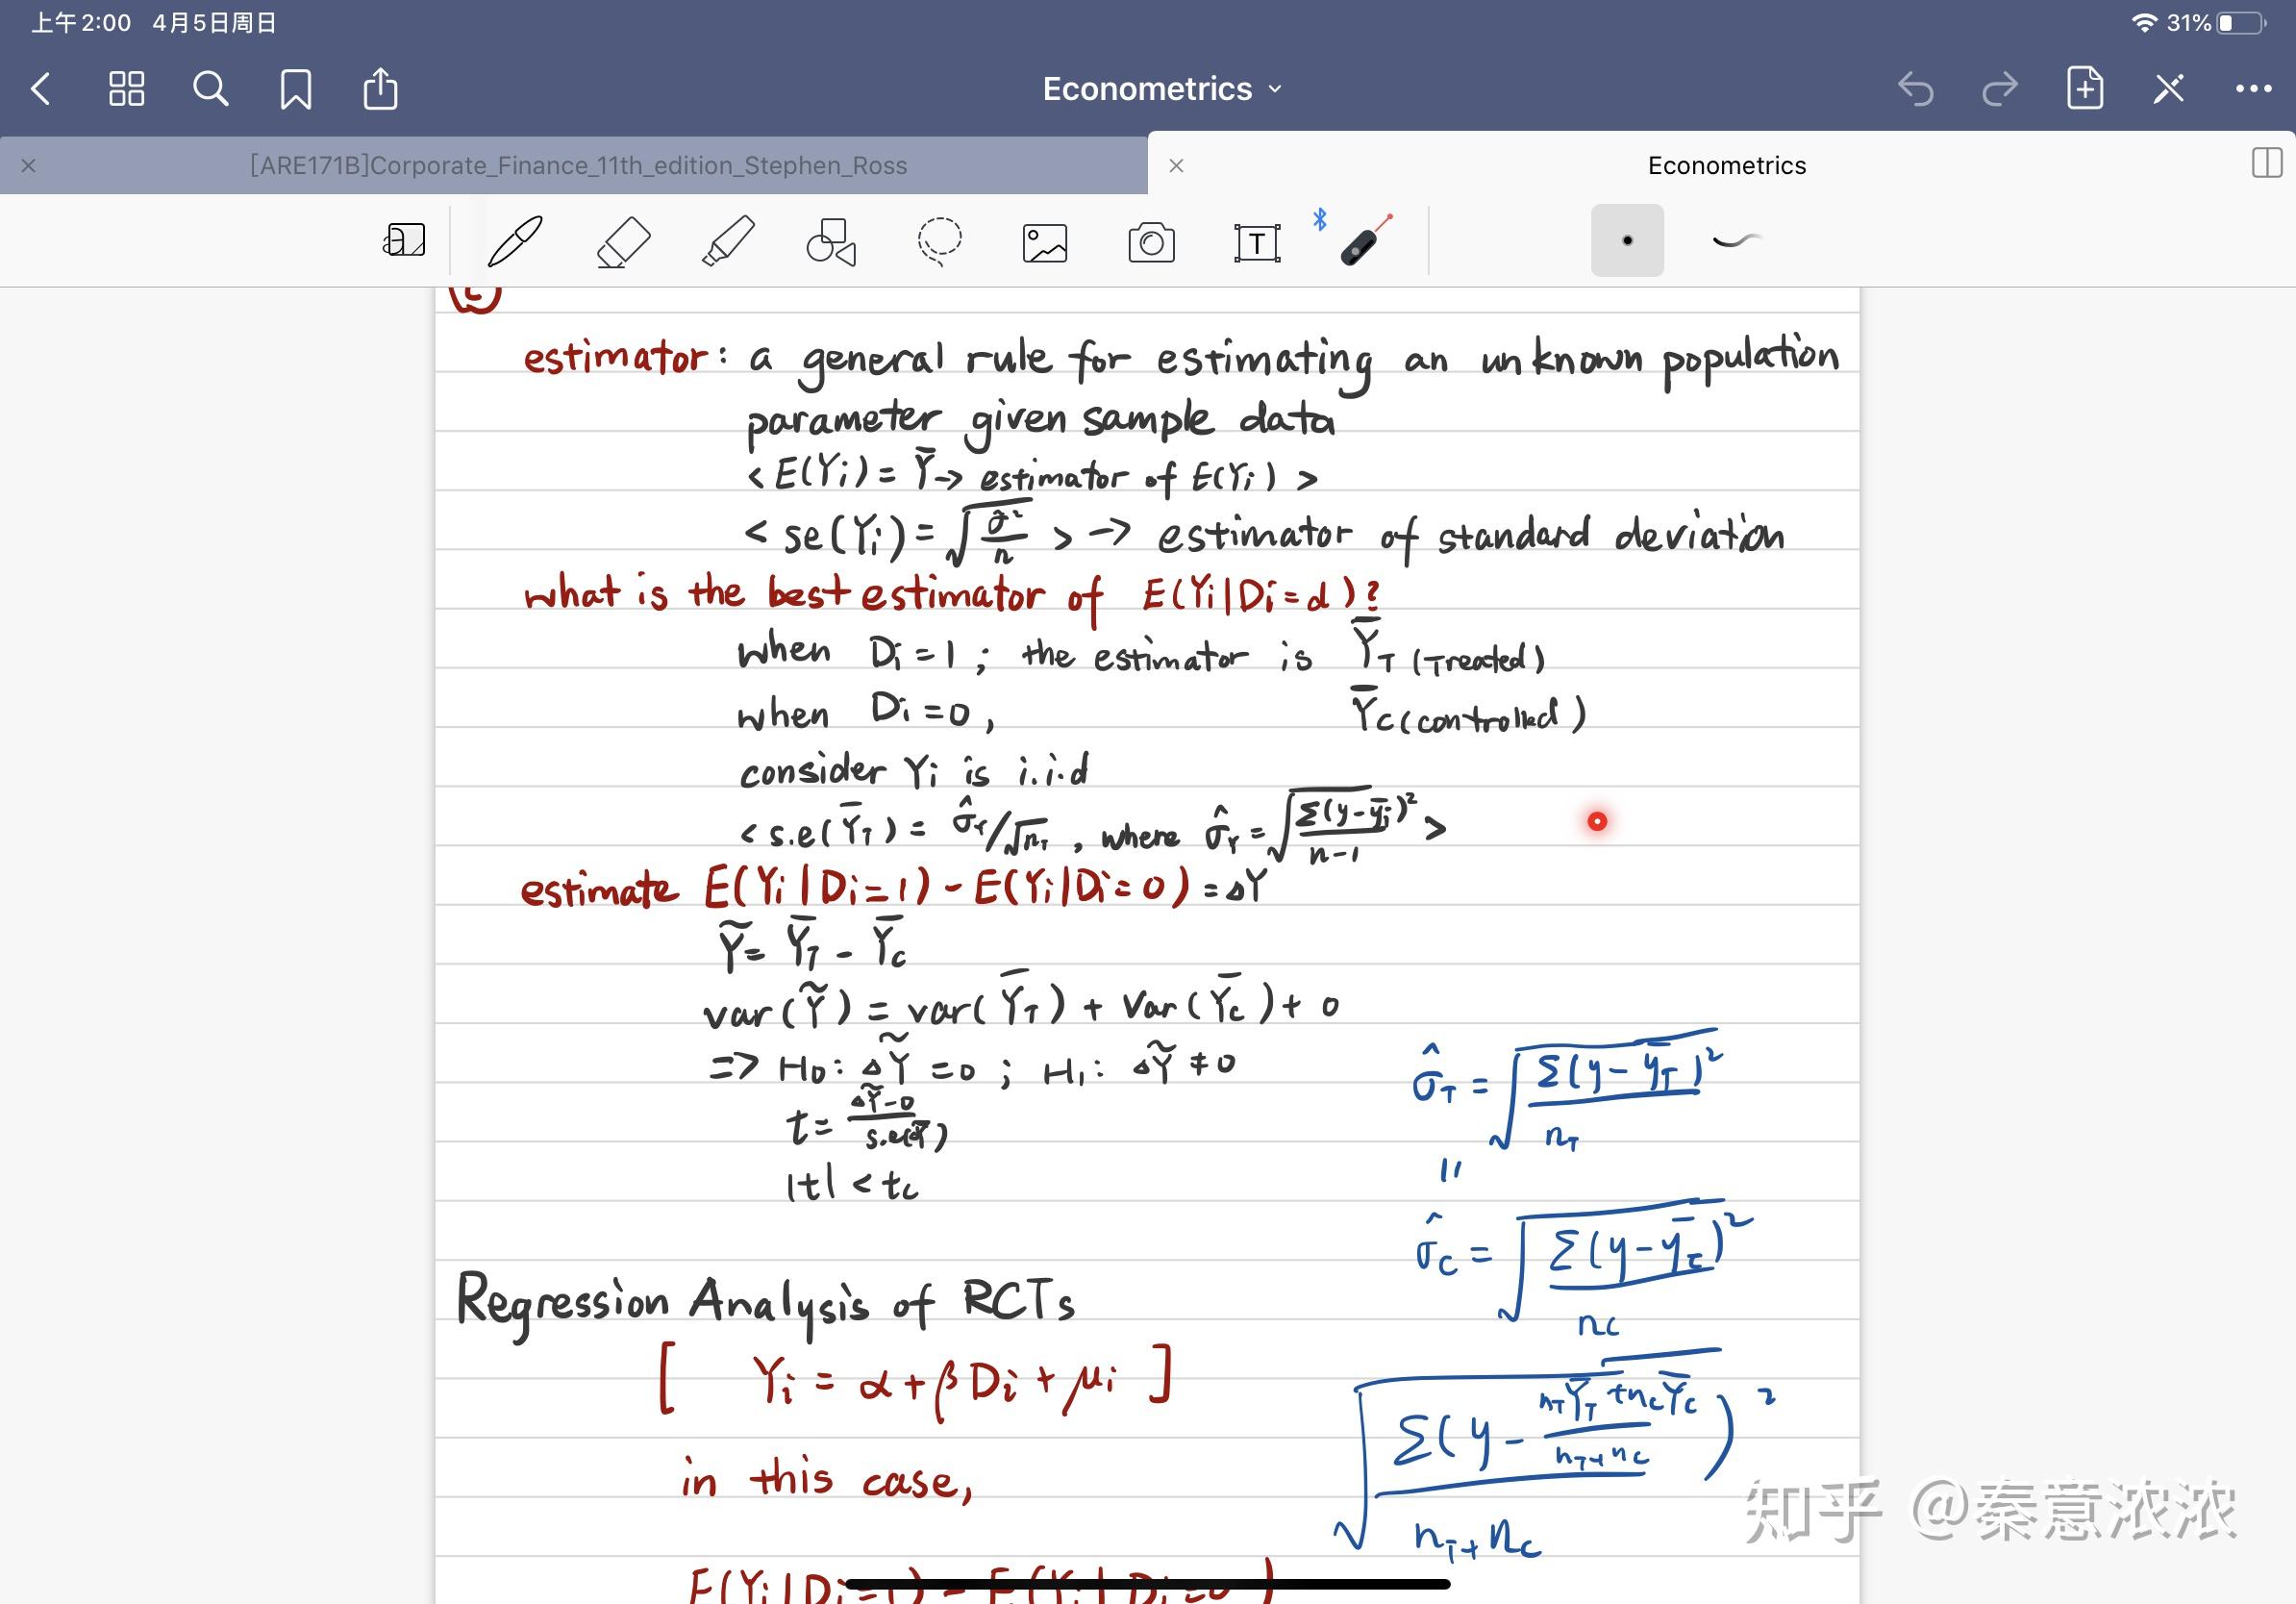 上午2:00 4月5日周日 31%
Econometrics
[ARE171B]Corporate_Finance_11th_edition_Stephen_Ross
Econometrics
estimator: a general rule for estimating an unknown population
parameter given sample data
< E(Yi) = Ȳ → estimator of E(Yi) >
< se(Yi) = √(σ̂²/n) > → estimator of standard deviation
what is the best estimator of E(Yi|Di=d)?
when Di=1; the estimator is Ȳ_T (Treated)
when Di=0, Ȳ_C (controlled)
consider Yi is i.i.d
< s.e(Ȳ_T) = σ̂_r/√n_T, where σ̂_r = √(Σ(y-ȳi)²/n-1) >
estimate E(Yi|Di=1) - E(Yi|Di=0) = ΔY
Ỹ = Ȳ_T - Ȳ_C
var(Ỹ) = var(Ȳ_T) + Var(Ȳ_C) + 0
=> H0: ΔỸ = 0; H1: ΔỸ ≠ 0
t = (ΔỸ-0)/s.e(Ỹ)
|t| < tc
σ̂_T = √(Σ(y-ȳ_T)²/n_T)
"
σ̂_C = √(Σ(y-ȳ_C)²/n_C)
√(Σ(y - (n_TȲ_T+n_CȲ_C)/(n_T+n_C))²/(n_T+n_C))
Regression Analysis of RCTs
[ Yi = α+βDi+μi ]
in this case,
知乎 @秦意浓浓